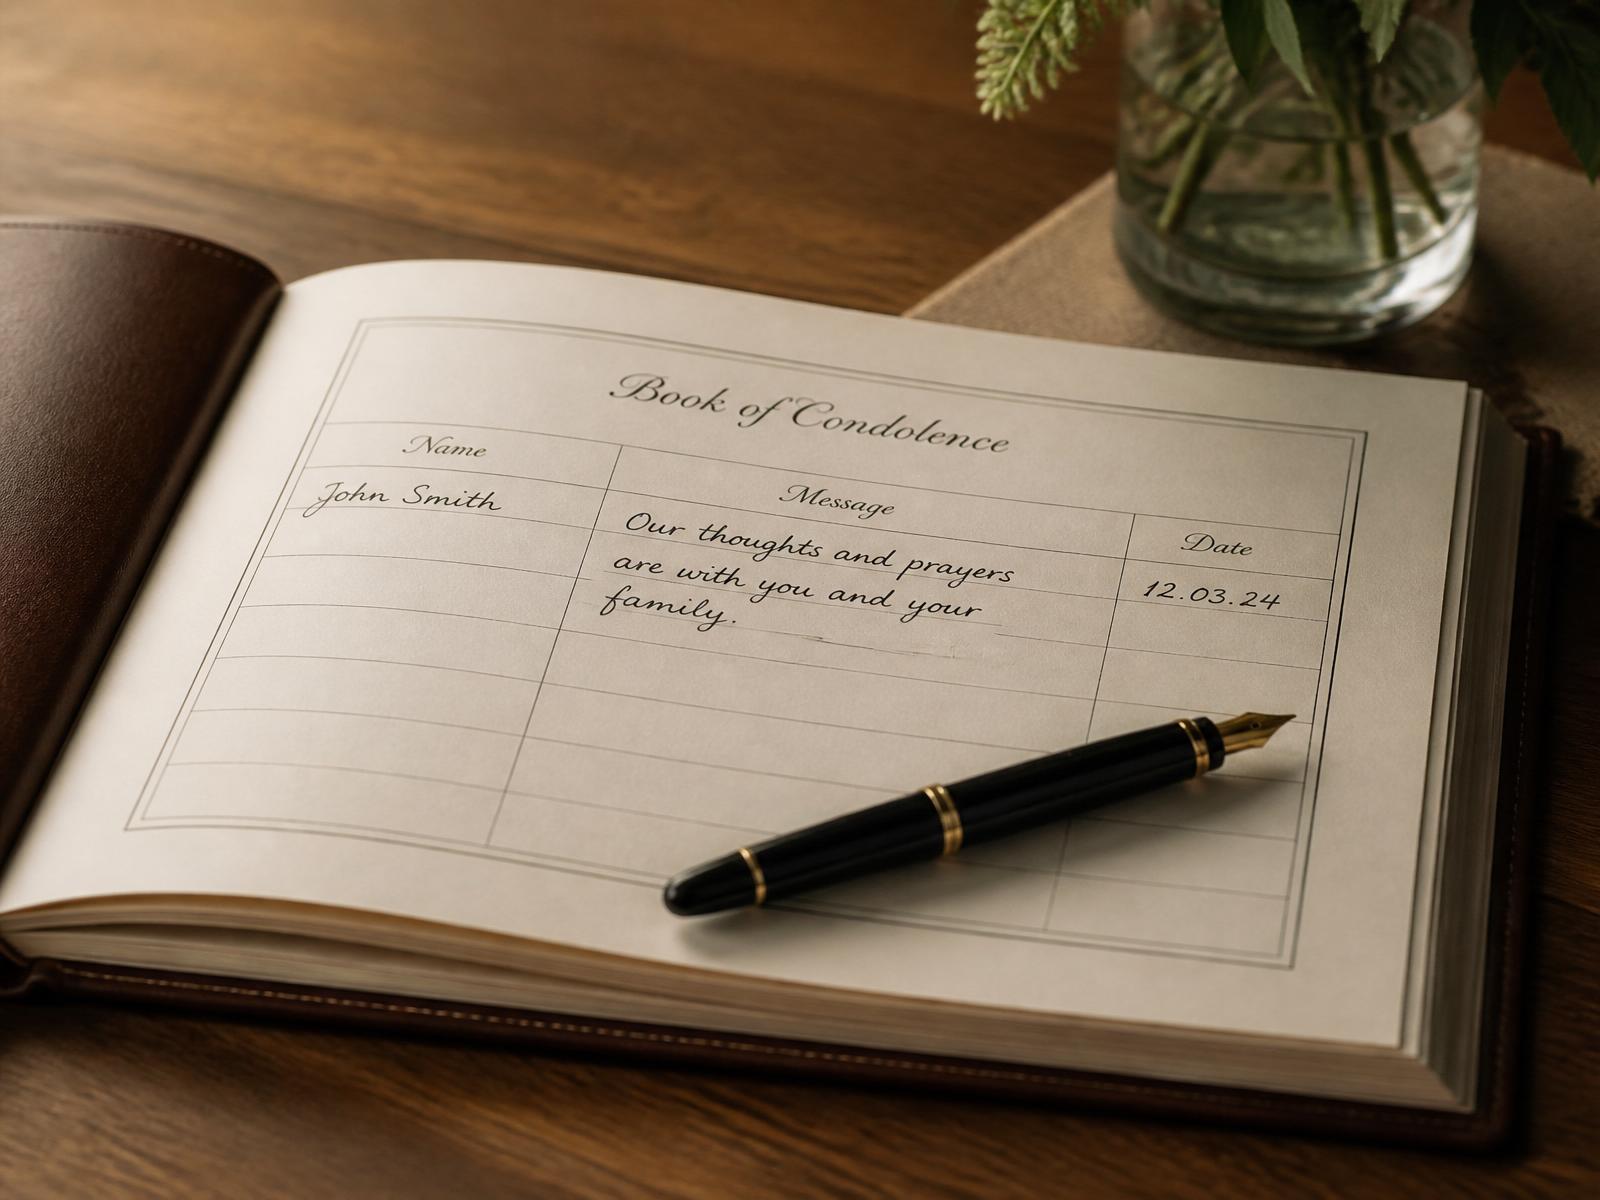 Book of Condolence
Name
Message
Date
John Smith
Our thoughts and prayers
are with you and your
family.
12.03.24